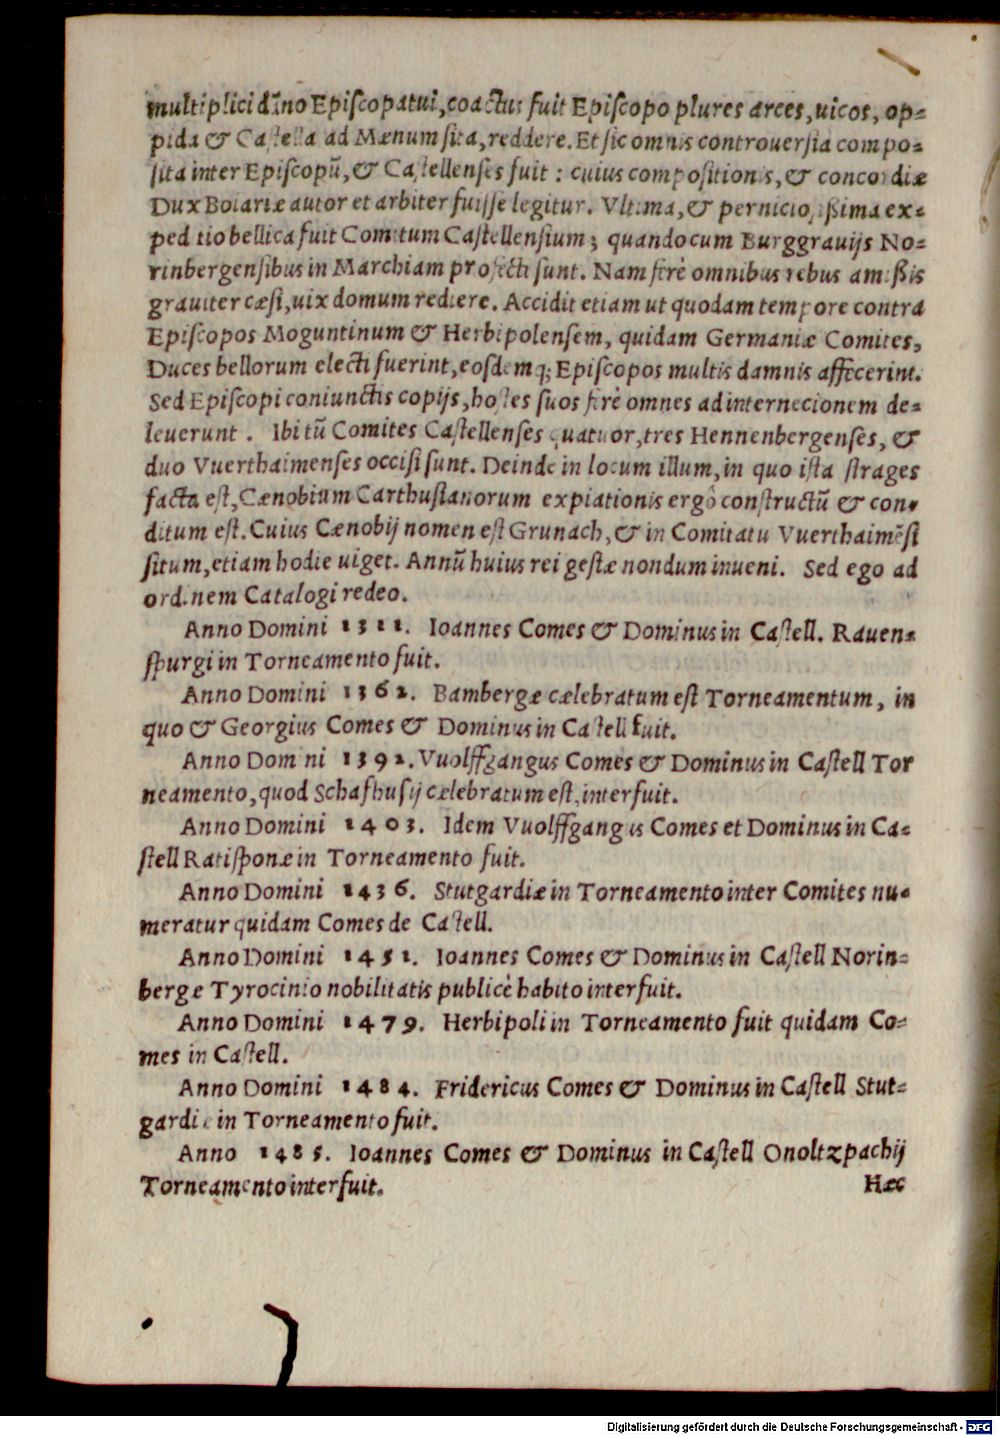 multiplici dāno Epiſcopatui, coactus fuit Epiſcopo plures arces, uicos, op-
pida & Caſtella ad Mænum ſita, reddere. Et ſic omnis controuerſia compo-
ſita inter Epiſcopū, & Caſtellenſes fuit : cuius compoſitionis, & concordiæ
Dux Boiariæ autor et arbiter fuiſſe legitur. Vltima, & pernicioſißima ex-
peditio bellica fuit Comitum Caſtellenſium; quando cum Burggrauijs No-
rinbergenſibus in Marchiam profecti ſunt. Nam ferè omnibus rebus amißis
grauiter cæſi, uix domum rediere. Accidit etiam ut quodam tempore contra
Epiſcopos Moguntinum & Herbipolenſem, quidam Germaniæ Comites,
Duces bellorum electi fuerint, eoſdemq; Epiſcopos multis damnis affecerint.
Sed Epiſcopi coniunctis copijs, hoſtes ſuos ferè omnes ad internecionem de-
leuerunt . Ibi tū Comites Caſtellenſes quatuor, tres Hennenbergenſes, &
duo Vuerthaimenſes occiſi ſunt. Deinde in locum illum, in quo iſta ſtrages
facta eſt, Cænobium Carthuſianorum expiationis ergô conſtructū & con-
ditum eſt. Cuius Cænobij nomen eſt Grunach, & in Comitatu Vuerthaimēſi
ſitum, etiam hodie uiget. Annū huius rei geſtæ nondum inueni. Sed ego ad
ordinem Catalogi redeo.
Anno Domini 1311. Ioannes Comes & Dominus in Caſtell. Rauen-
ſpurgi in Torneamento fuit.
Anno Domini 1362. Bambergæ cælebratum eſt Torneamentum, in
quo & Georgius Comes & Dominus in Caſtell fuit.
Anno Domini 1392. Vuolffgangus Comes & Dominus in Caſtell Tor
neamento, quod Schafhuſij cælebratum eſt, interfuit.
Anno Domini 1403. Idem Vuolffgangus Comes et Dominus in Ca-
ſtell Ratiſponæ in Torneamento fuit.
Anno Domini 1436. Stutgardiæ in Torneamento inter Comites nu-
meratur quidam Comes de Caſtell.
Anno Domini 1451. Ioannes Comes & Dominus in Caſtell Norin-
bergæ Tyrocinio nobilitatis publicè habito interfuit.
Anno Domini 1479. Herbipoli in Torneamento fuit quidam Co-
mes in Caſtell.
Anno Domini 1484. Fridericus Comes & Dominus in Caſtell Stut-
gardiæ in Torneamento fuit.
Anno 1485. Ioannes Comes & Dominus in Caſtell Onoltzpachij
Torneamento interfuit.
Hæc
Digitalisierung gefördert durch die Deutsche Forschungsgemeinschaft - DFG